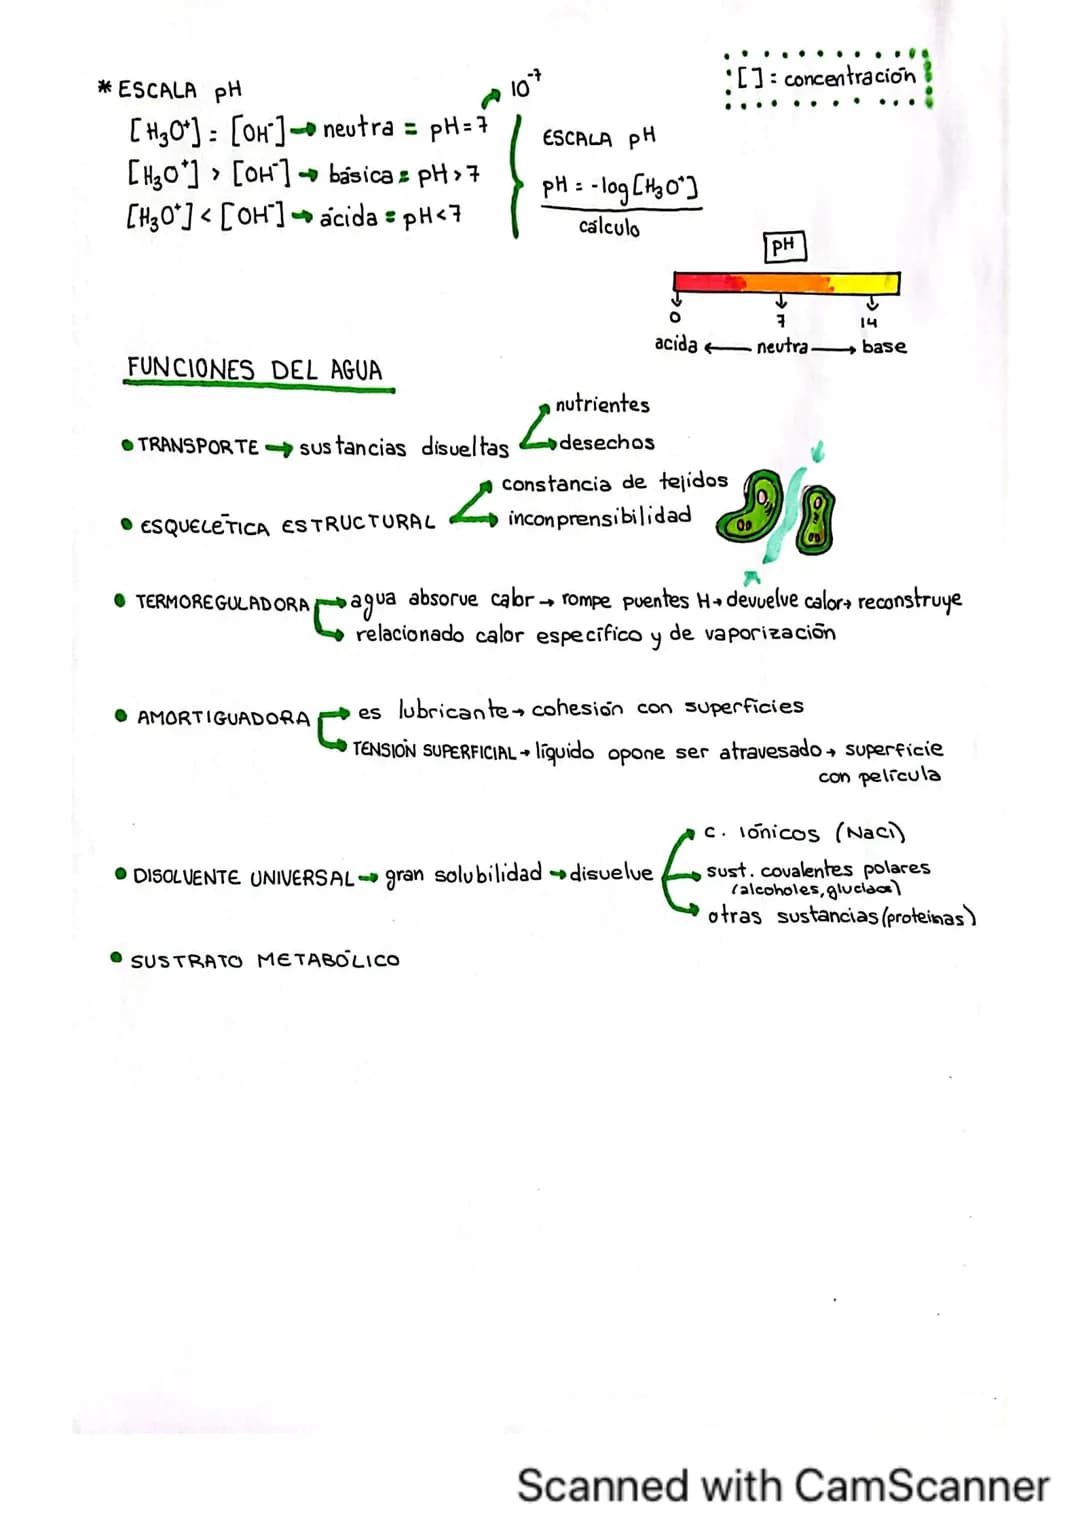 * ESCALA pH
10⁻⁷
[ ] : concentración
[H₃O⁺] = [OH⁻] → neutra = pH=7
[H₃O⁺] > [OH⁻] → básica = pH>7
[H₃O⁺] < [OH⁻] → ácida = pH<7
ESCALA pH
pH = -log[H₃O⁺]
cálculo
pH
0 7 14
acida ← neutra → base
FUNCIONES DEL AGUA
• TRANSPORTE → sustancias disueltas
nutrientes
desechos
• ESQUELÉTICA ESTRUCTURAL
constancia de tejidos
inconprensibilidad
• TERMOREGULADORA → agua absorve calor → rompe puentes H → devuelve calor → reconstruye
relacionado calor específico y de vaporización
• AMORTIGUADORA → es lubricante → cohesión con superficies
TENSIÓN SUPERFICIAL → líquido opone ser atravesado → superfície
con película
• DISOLVENTE UNIVERSAL → gran solubilidad → disuelve
c. iónicos (NaCl)
sust. covalentes polares
(alcoholes,
otras sustancias (proteinas)
• SUSTRATO METABÓLICO
Scanned with CamScanner